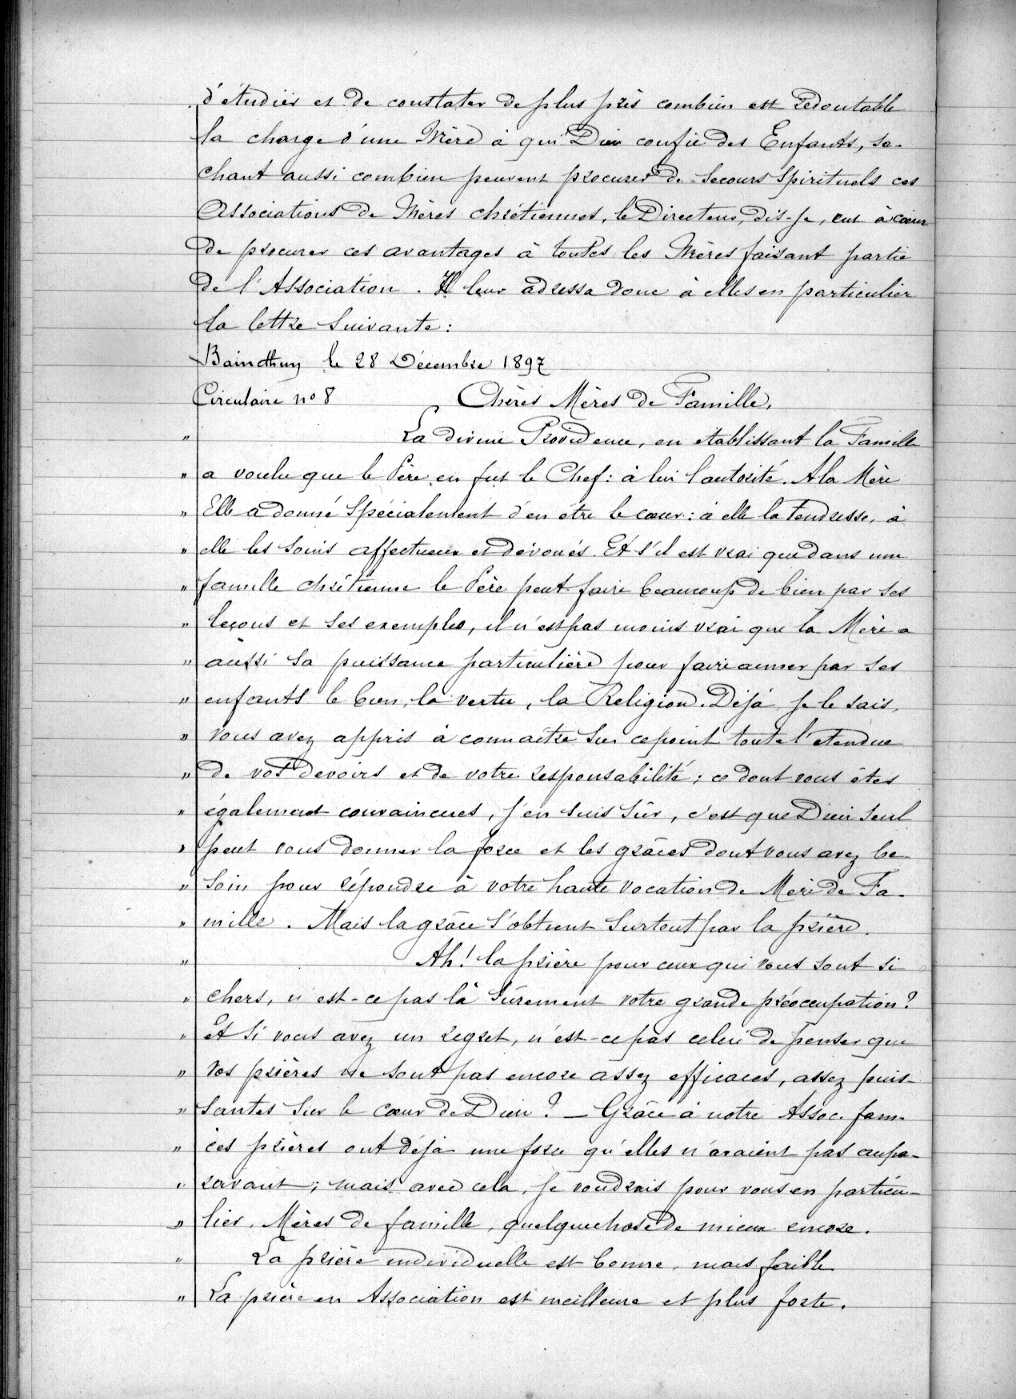 d'étudier et de constater de plus près combien est redoutable
la charge d'une Mère à qui Dieu confie des Enfants, sa-
chant aussi combien peuvent procurer de secours Spirituels ces
Associations de Mères chrétiennes, le Directeur, dis-je, eut à cœur
de procurer ces avantages à toutes les Mères faisant partie
de l'Association. Il leur adressa donc à elles en particulier
la lettre suivante :
Baincthun le 28 Décembre 1897
Circulaire n° 8 Chères Mères de Famille,
" La divine Providence, en établissant la Famille
" a voulu que le Père en fut le Chef : à lui l'autorité. A la Mère
" Elle a donné Spécialement d'en être le cœur : à elle la tendresse, à
" elle les soins affectueux et dévoués. Et s'il est vrai que dans une
" famille chrétienne le Père peut faire beaucoup de bien par ses
" leçons et ses exemples, il n'est pas moins vrai que la Mère a
" aussi sa puissance particulière pour faire aimer par ses
" enfants le bien, la vertu, la Religion. Déjà je le sais,
" vous avez appris à connaître sur ce point toute l'étendue
" de vos devoirs et de votre responsabilité ; ce dont vous êtes
" également convaincues, j'en suis sûr, c'est que Dieu seul
" peut vous donner la force et les grâces dont vous avez be
" soin pour répondre à votre haute vocation de Mère de Fa-
" mille. Mais la grâce s'obtient surtout par la prière.
" Ah ! la prière pour ceux qui vous sont si
" chers, n'est-ce pas là sûrement votre grande préoccupation ?
" Et si vous avez un regret, n'est-ce pas celui de penser que
" vos prières ne sont pas encore assez efficaces, assez puis-
" santes sur le cœur de Dieu ? — Grâce à notre Assoc. fam.
" ces prières ont déjà une force qu'elles n'avaient pas aupa-
" ravant ; mais avec cela, je voudrais pour vous en particu-
" lier, Mères de famille, quelquechose de mieux encore.
" La prière individuelle est bonne, mais faible
" La prière en Association est meilleure et plus forte.